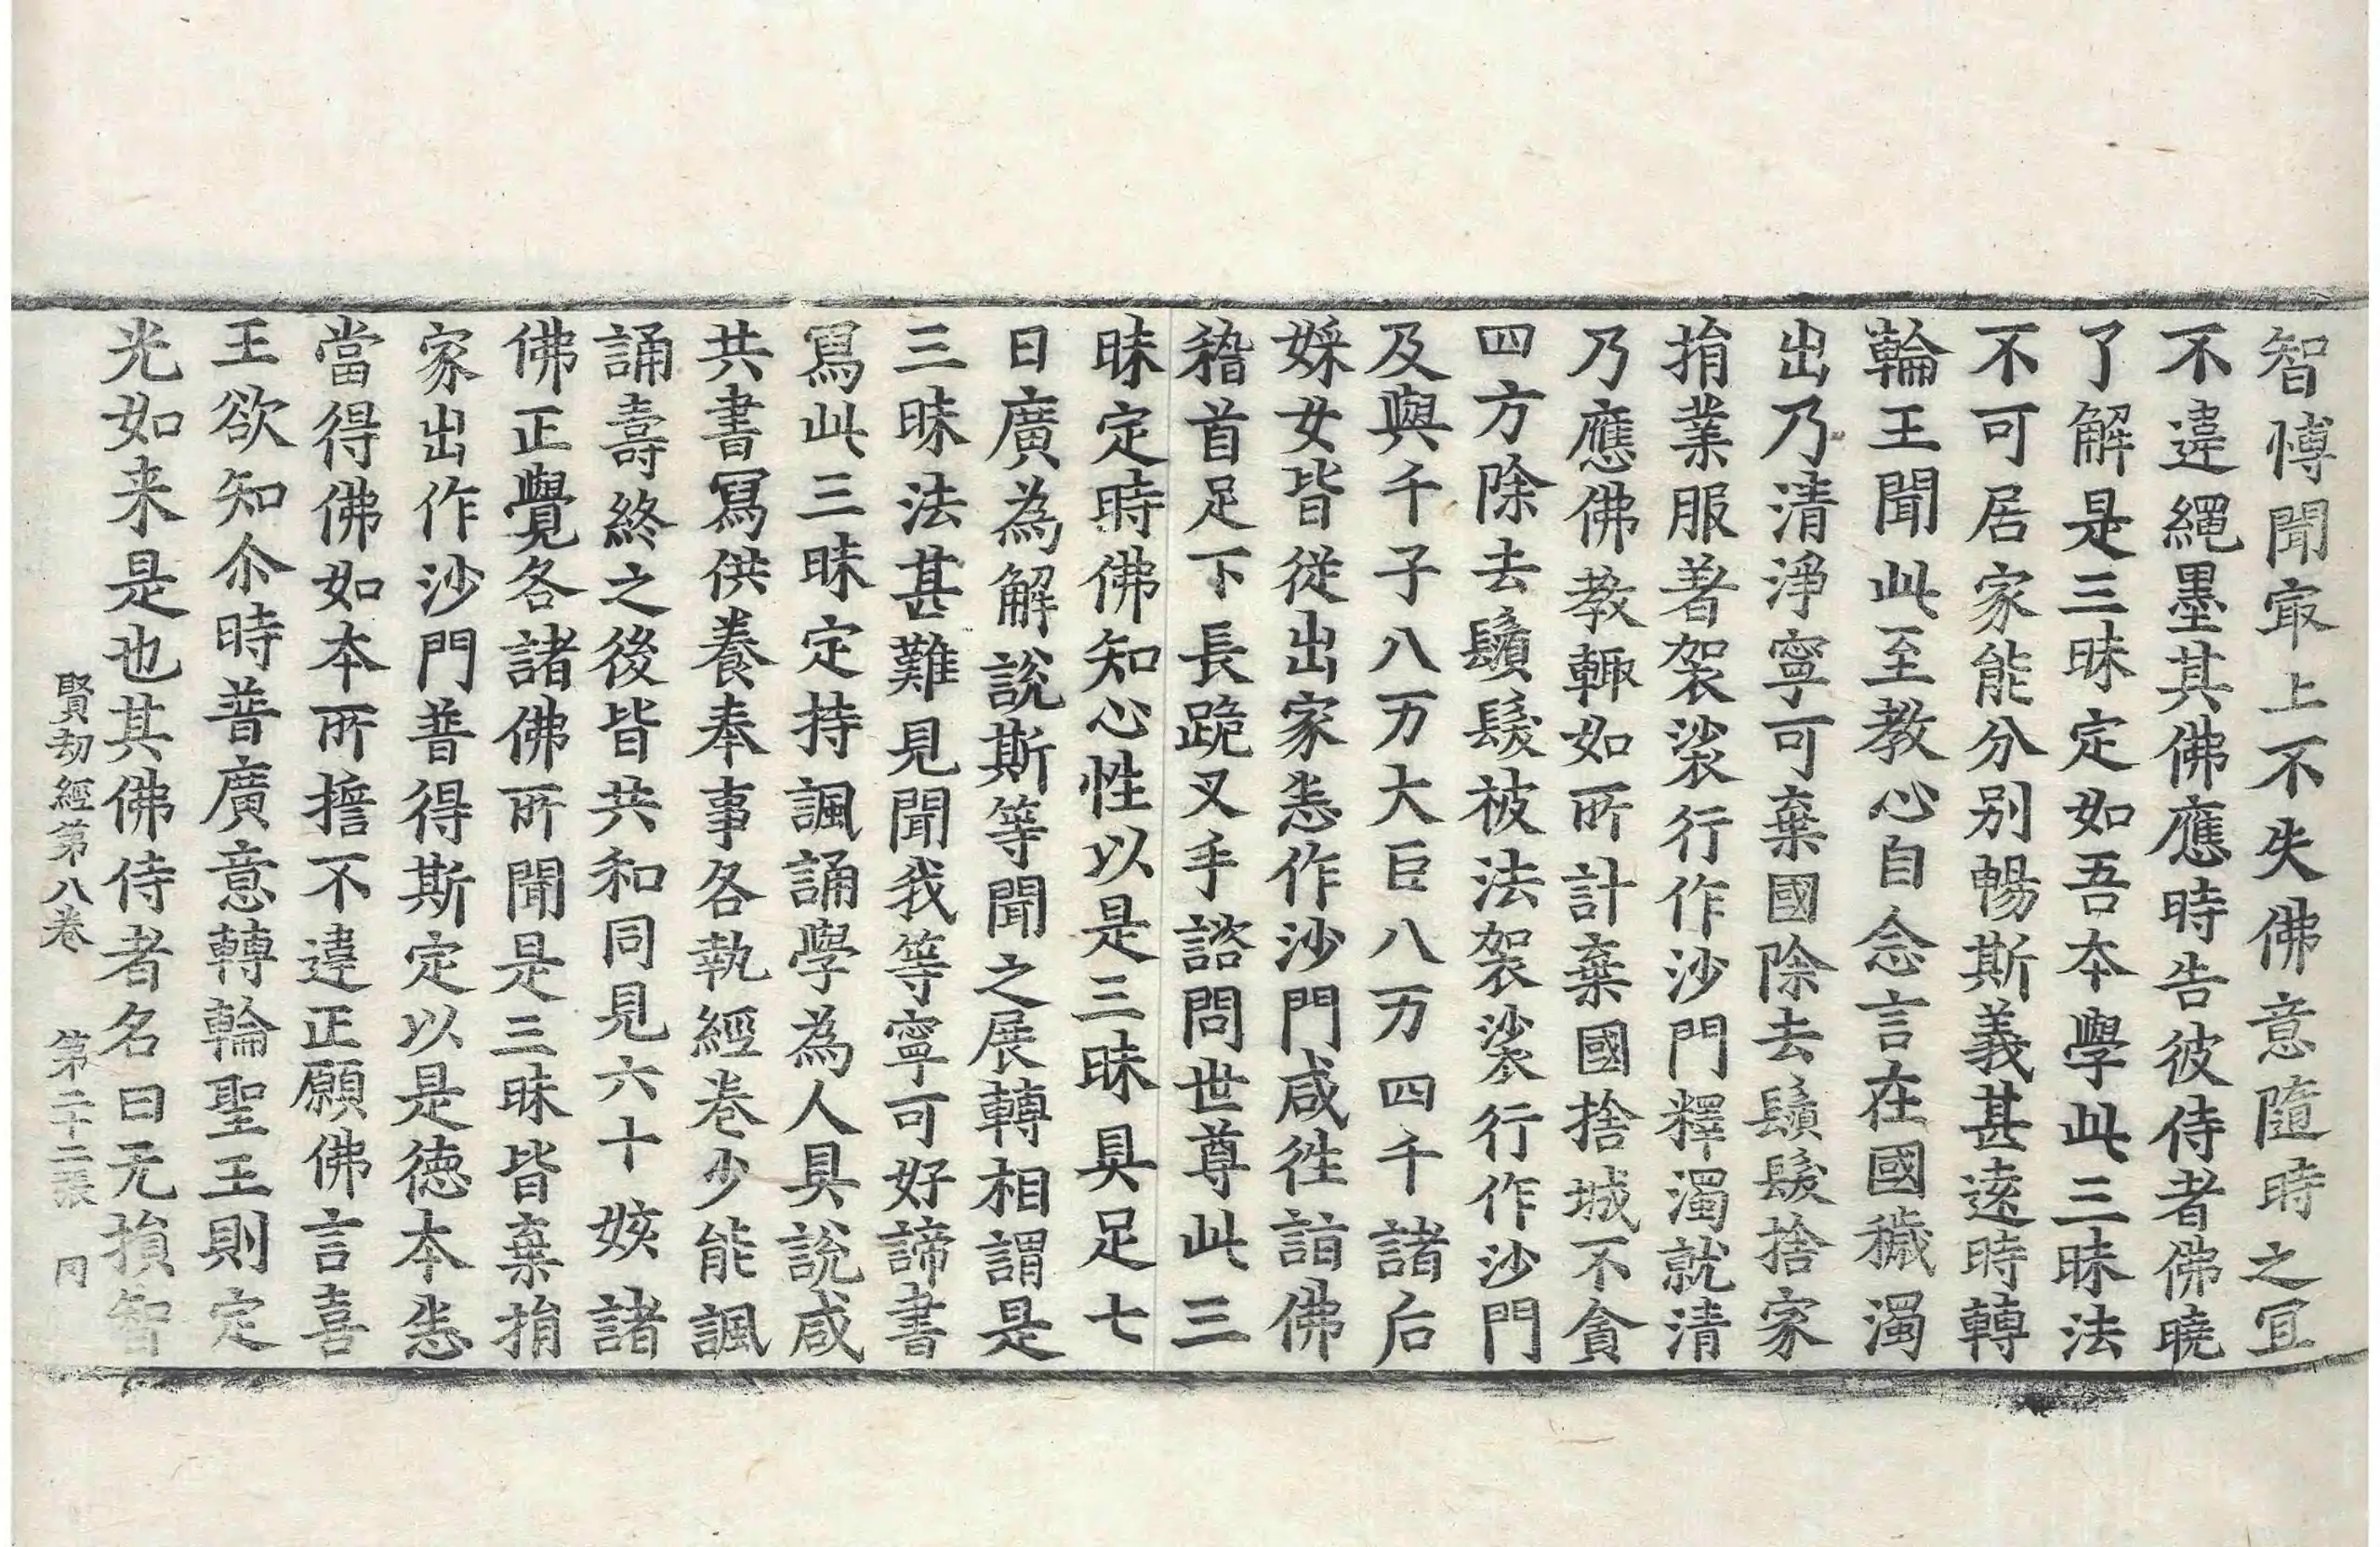 智博聞冣上不失佛意隨時之冝
不違繩墨其佛應時告彼侍者佛曉
了解是三昧定如吾本學此三昧法
不可居家能分别暢斯義甚逺時轉
輪王聞此至教心自念言在國穢濁
出乃清淨寧可棄國除去鬚髮捨家
捐業服著袈裟行作沙門釋濁就清
乃應佛教輙如所計棄國捨城不貪
四方除去鬚髮被法袈裟行作沙門
及與千子八万大臣八万四千諸后
婇女皆從出家悉作沙門咸徃詣佛
稽首足下長跪叉手諮問世尊此三
昧定時佛知心性以是三昧具足七
日廣為解說斯等聞之展轉相謂是
三昧法甚難見聞我等寧可好諦書
寫此三昧定持諷誦學為人具說咸
共書寫供養奉事各執經卷少能諷
誦壽終之後皆共和同見六十姟諸
佛正覺各諸佛所聞是三昧皆棄捐
家出作沙門普得斯定以是德本悉
當得佛如本所擔不違正願佛言喜
王欲知尒時普廣意轉輪聖王則定
光如来是也其佛侍者名曰无損智
賢劫經第八卷　第二十二張　同